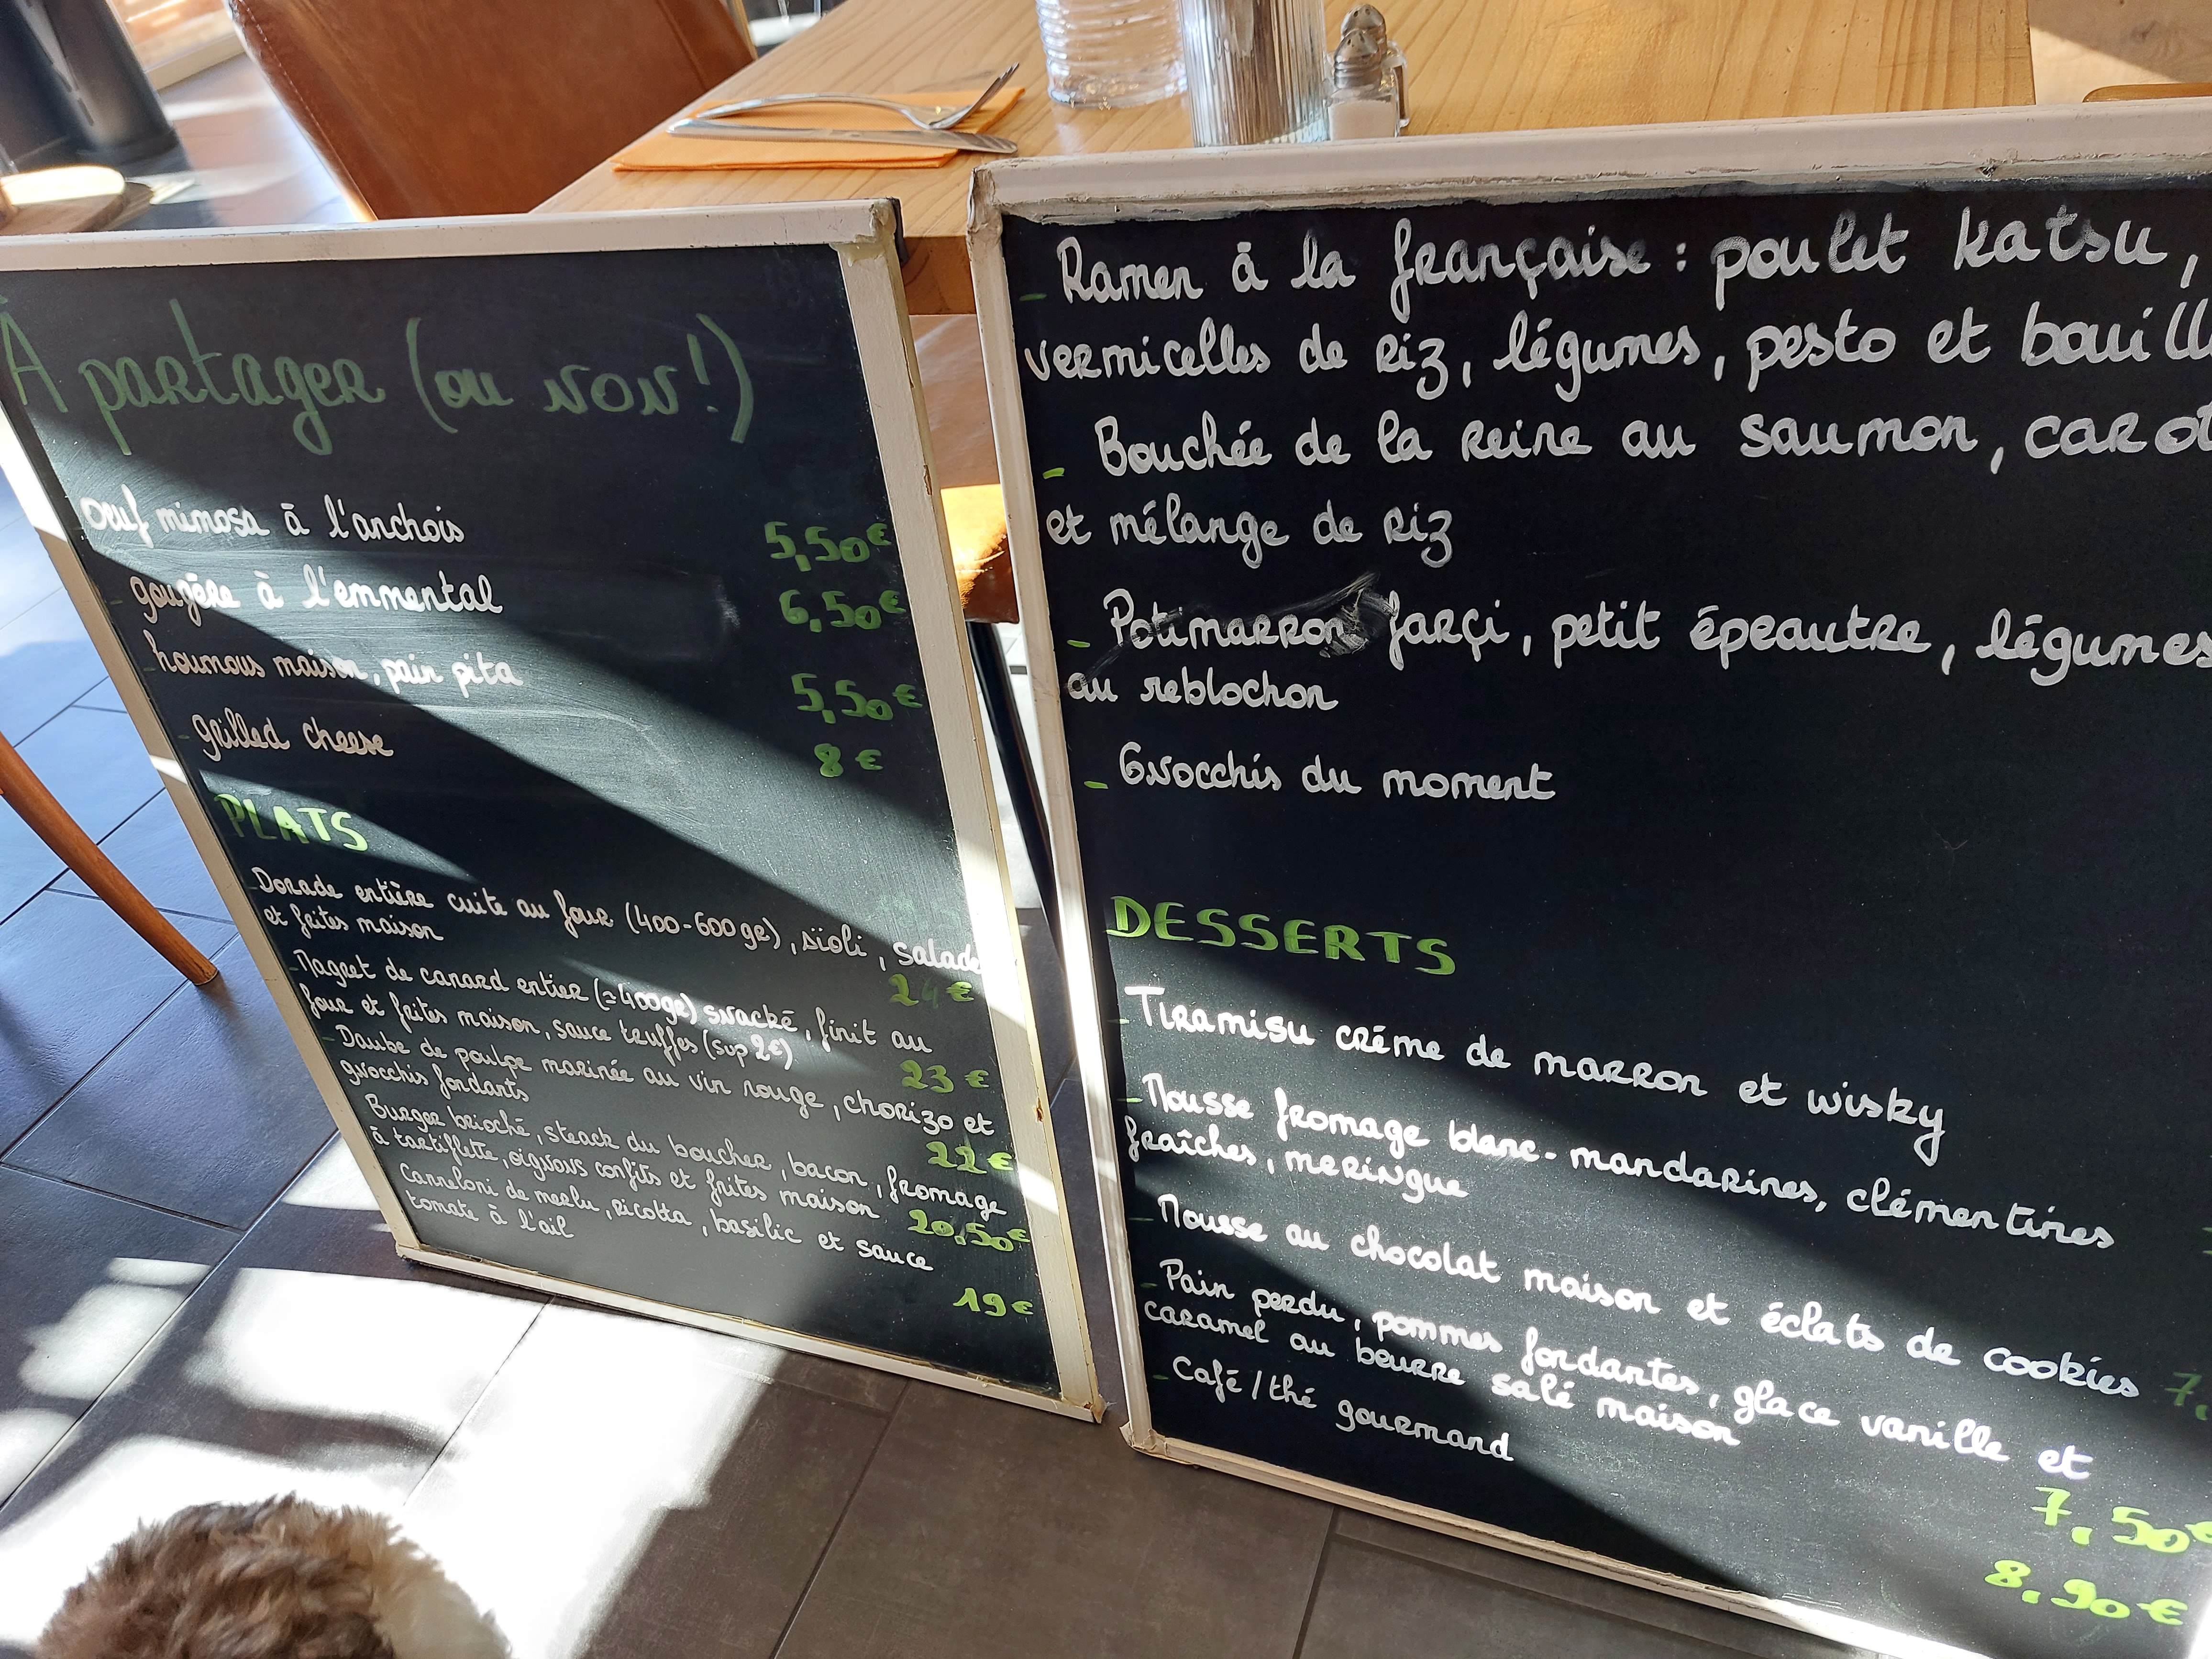 À partager (ou NON!)
- œuf mimosa à l'anchois 5,50€
- gougère à l'emmental 6,50€
- houmous maison, pain pita 5,50€
- grilled cheese 8€
PLATS
- Dorade entière cuite au four (400-600gr), aïoli, salade
et frites maison 24€
- Magret de canard entier (≃400gr) snacké, finit au
four et frites maison, sauce truffes (sup 2€) 23€
- Daube de poulpe marinée au vin rouge, chorizo et
gnocchis fondants 22€
Burger brioché, steack du boucher, bacon, fromage
à tartiflette, oignons confits et frites maison 20,50€
Canneloni de merlu, ricotta, basilic et sauce
tomate à l'ail 19€
- Ramen à la française : poulet katsu,
vermicelles de riz, légumes, pesto et bouill
- Bouchée de la reine au saumon, carot
et mélange de riz
- Potimarron farçi, petit épeautre, légumes
au reblochon
- Gnocchis du moment
DESSERTS
- Tiramisu crème de marron et wisky
- Mousse fromage blanc - mandarines, clémentines
fraîches, meringue
- Mousse au chocolat maison et éclats de cookies 7,
- Pain perdu, pommes fondantes, glace vanille et
caramel au beurre salé maison 7,50€
- Café/thé gourmand 8,90€